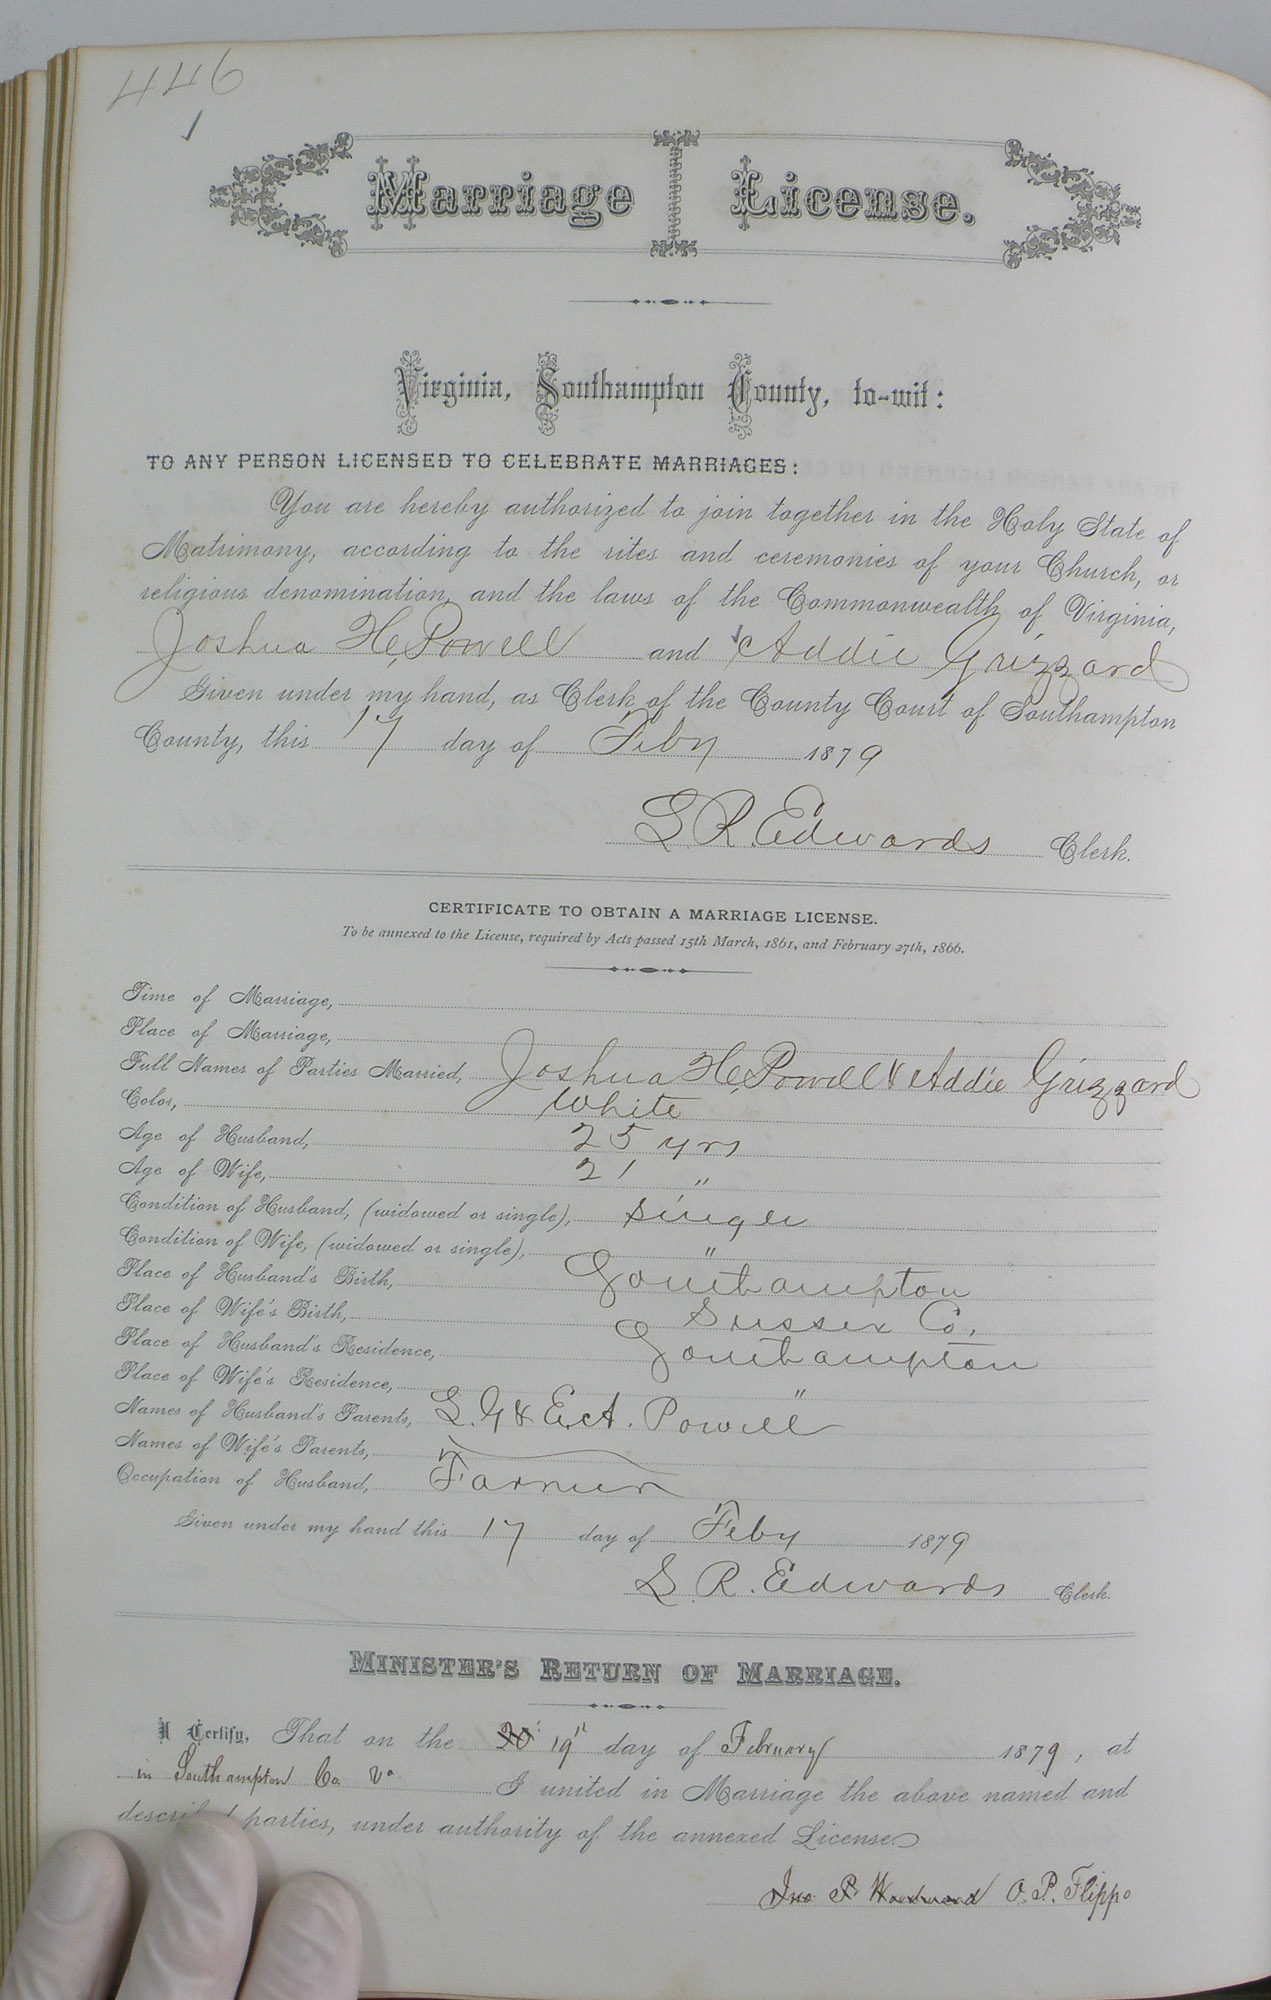 446
Marriage License.
Virginia, Southampton County, to-wit:
TO ANY PERSON LICENSED TO CELEBRATE MARRIAGES:
You are hereby authorized to join together in the Holy State of
Matrimony, according to the rites and ceremonies of your Church, or
religious denomination, and the laws of the Commonwealth of Virginia,
Joshua H. Powell and Addie Grizzard
Given under my hand, as Clerk of the County Court of Southampton
County, this 17 day of Feby 1879
L. R. Edwards Clerk.
CERTIFICATE TO OBTAIN A MARRIAGE LICENSE.
To be annexed to the License, required by Acts passed 15th March, 1861, and February 27th, 1866.
Time of Marriage,
Place of Marriage,
Full Names of Parties Married, Joshua H. Powell & Addie Grizzard
Color, White
Age of Husband, 25 yrs
Age of Wife, 21 "
Condition of Husband, (widowed or single), single
Condition of Wife, (widowed or single), "
Place of Husband's Birth, Southampton
Place of Wife's Birth, Sussex Co.
Place of Husband's Residence, Southampton
Place of Wife's Residence, "
Names of Husband's Parents, Powell
Names of Wife's Parents,
Occupation of Husband, Farmer
Given under my hand this 17 day of Feby 1879
L. R. Edwards Clerk.
MINISTER'S RETURN OF MARRIAGE.
I Certify, That on the 20 19" day of February 1879, at
in Southampton Co. Va I united in Marriage the above named and
described parties, under authority of the annexed License
Jno P. Woodward O. P. Flippo